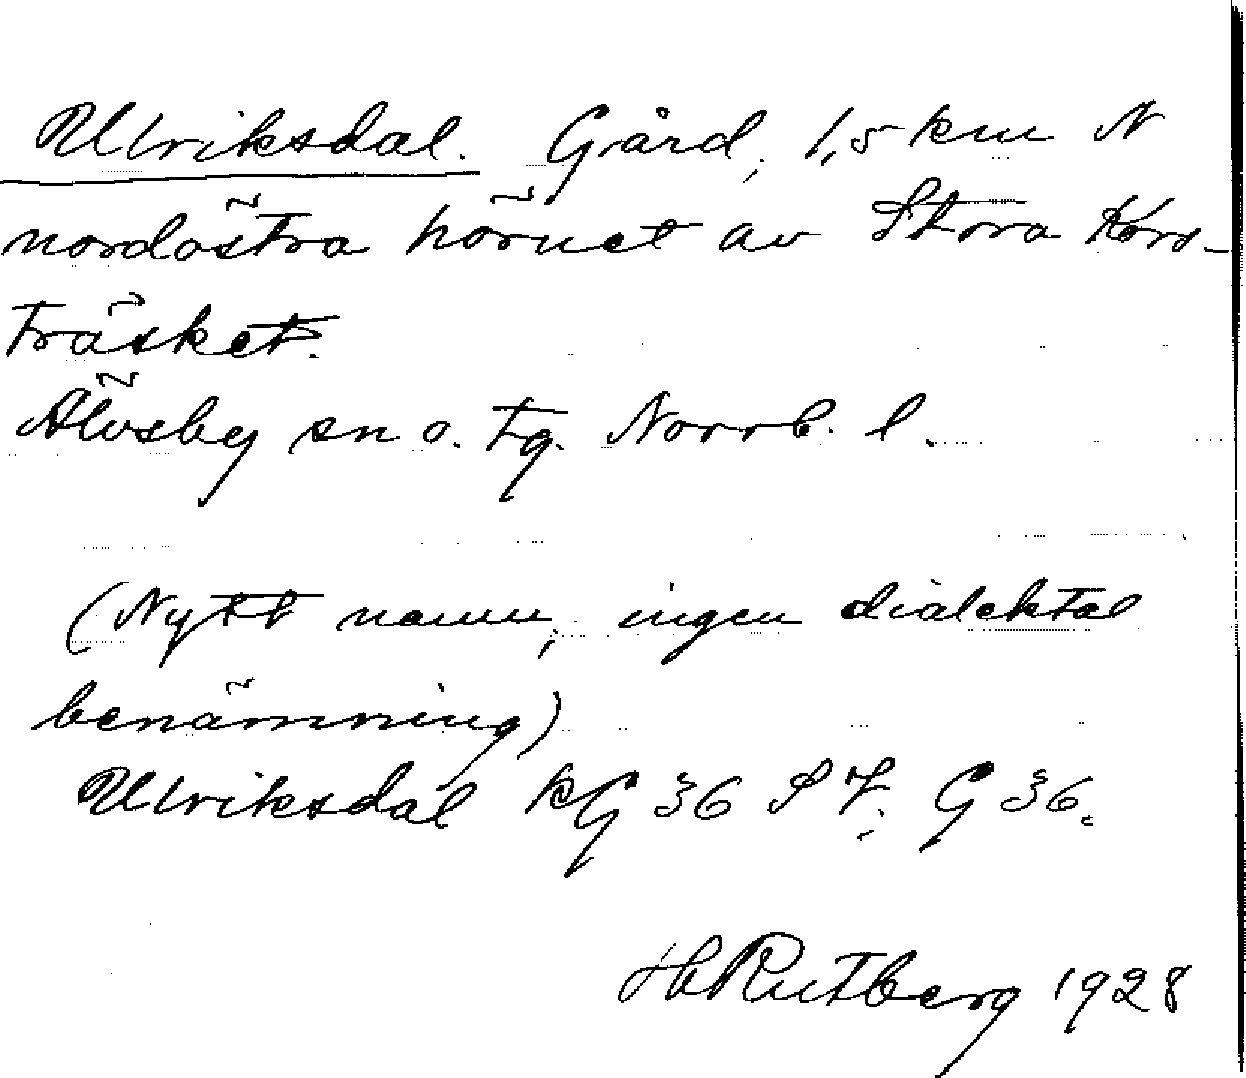 Ulriksdal. Gård, 1,5 km N
nordöstra hörnet av Stora Kors-
träsket.
Älvsby sn o. tg. Norrb. l.
(Nytt namn, ingen dialektal
benämning)
Ulriksdal kG 36 S F; G 36.
H Rutberg 1928